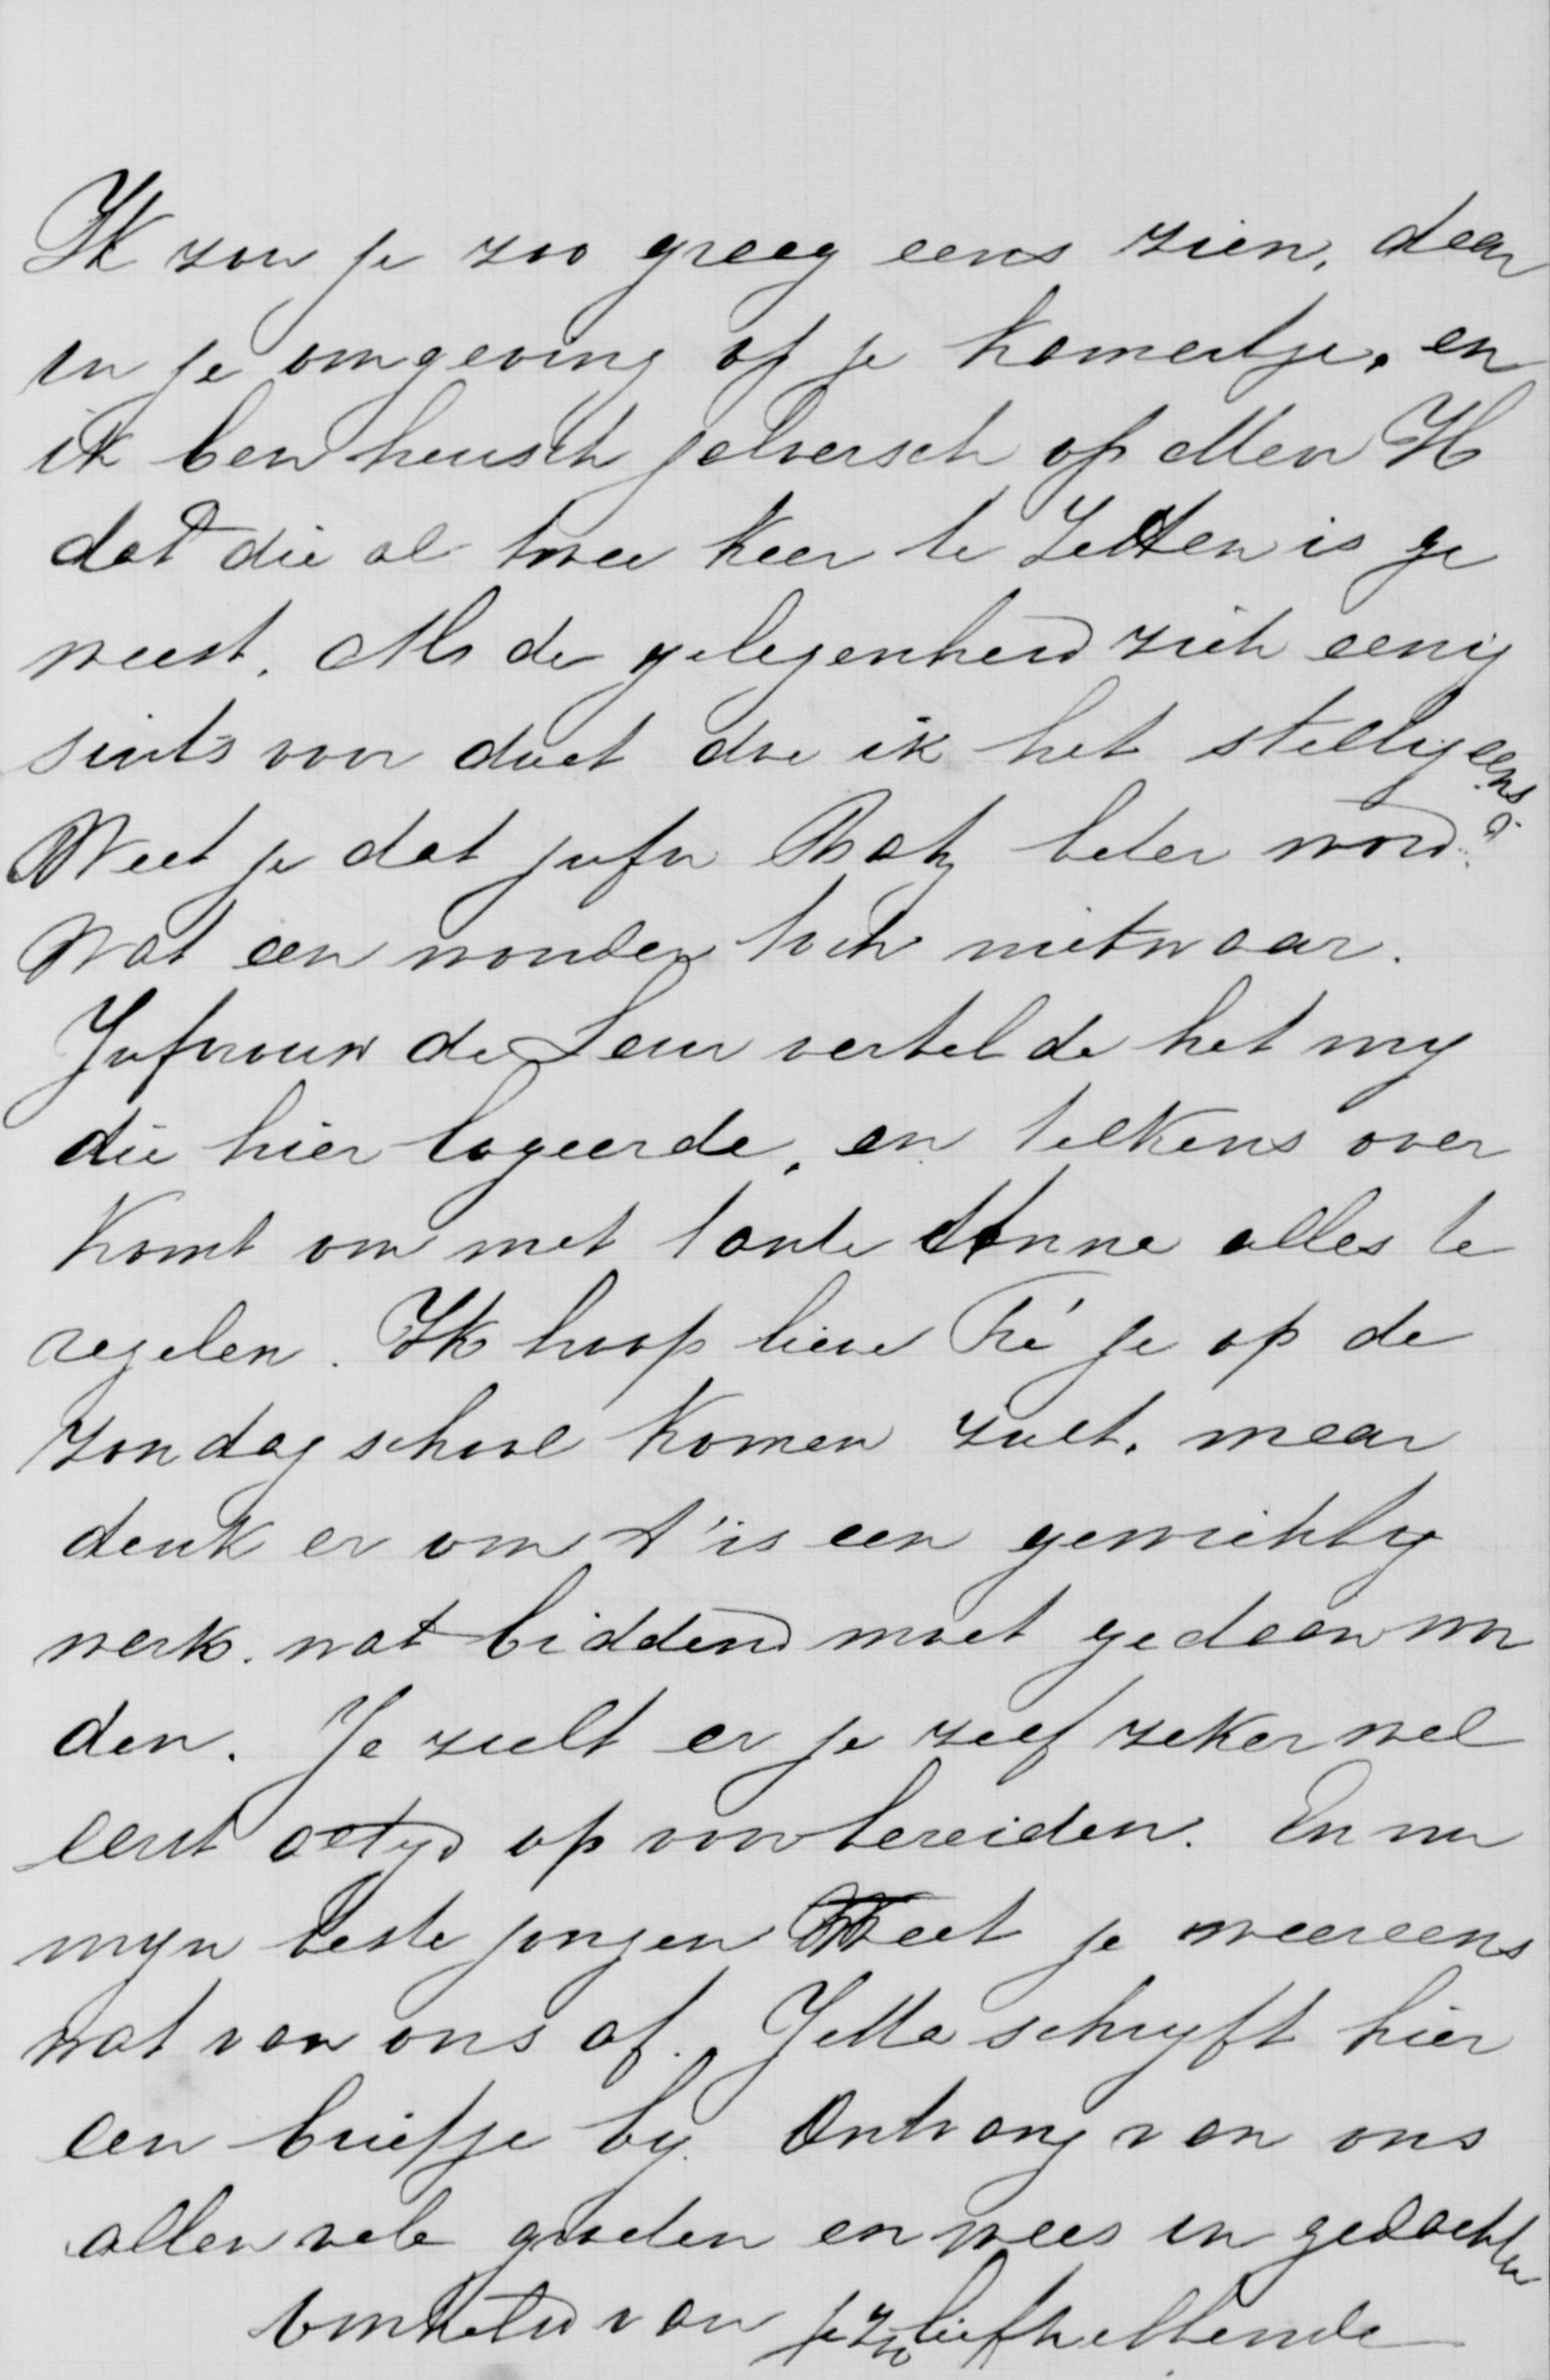 Ik zou je zoo graag eens zien, daar
in je omgeving op je kamertje, en
ik ben heusch jaloersch op Mev H
dat die al twee keer te Zetten is ge
weest. Als de gelegenheid zich eenig
sints voor doet doe ik het stellig eens
Weet je dat jufr beter word?
Wat een wonder toch nietwaar.
Jufvrouw de Leur vertelde het my
die hier logeerde, en telkens over
komt om met tante Anna alles te
regelen. Ik hoop lieve Fré je op de
zondagschool komen zult, maar
denk er om t'is een gewichtig
werk. wat biddend moet gedaan wor
den. Je zult er je zelf zeker wel
eerst altyd op voorbereiden. En nu
myn beste jongen Weet je weereens
wat van ons af. Jetta schryft hier
een briefje by. Ontvang van ons
allen vele groeten en wees in gedachten
omhelsd van je zoo liefhebbende